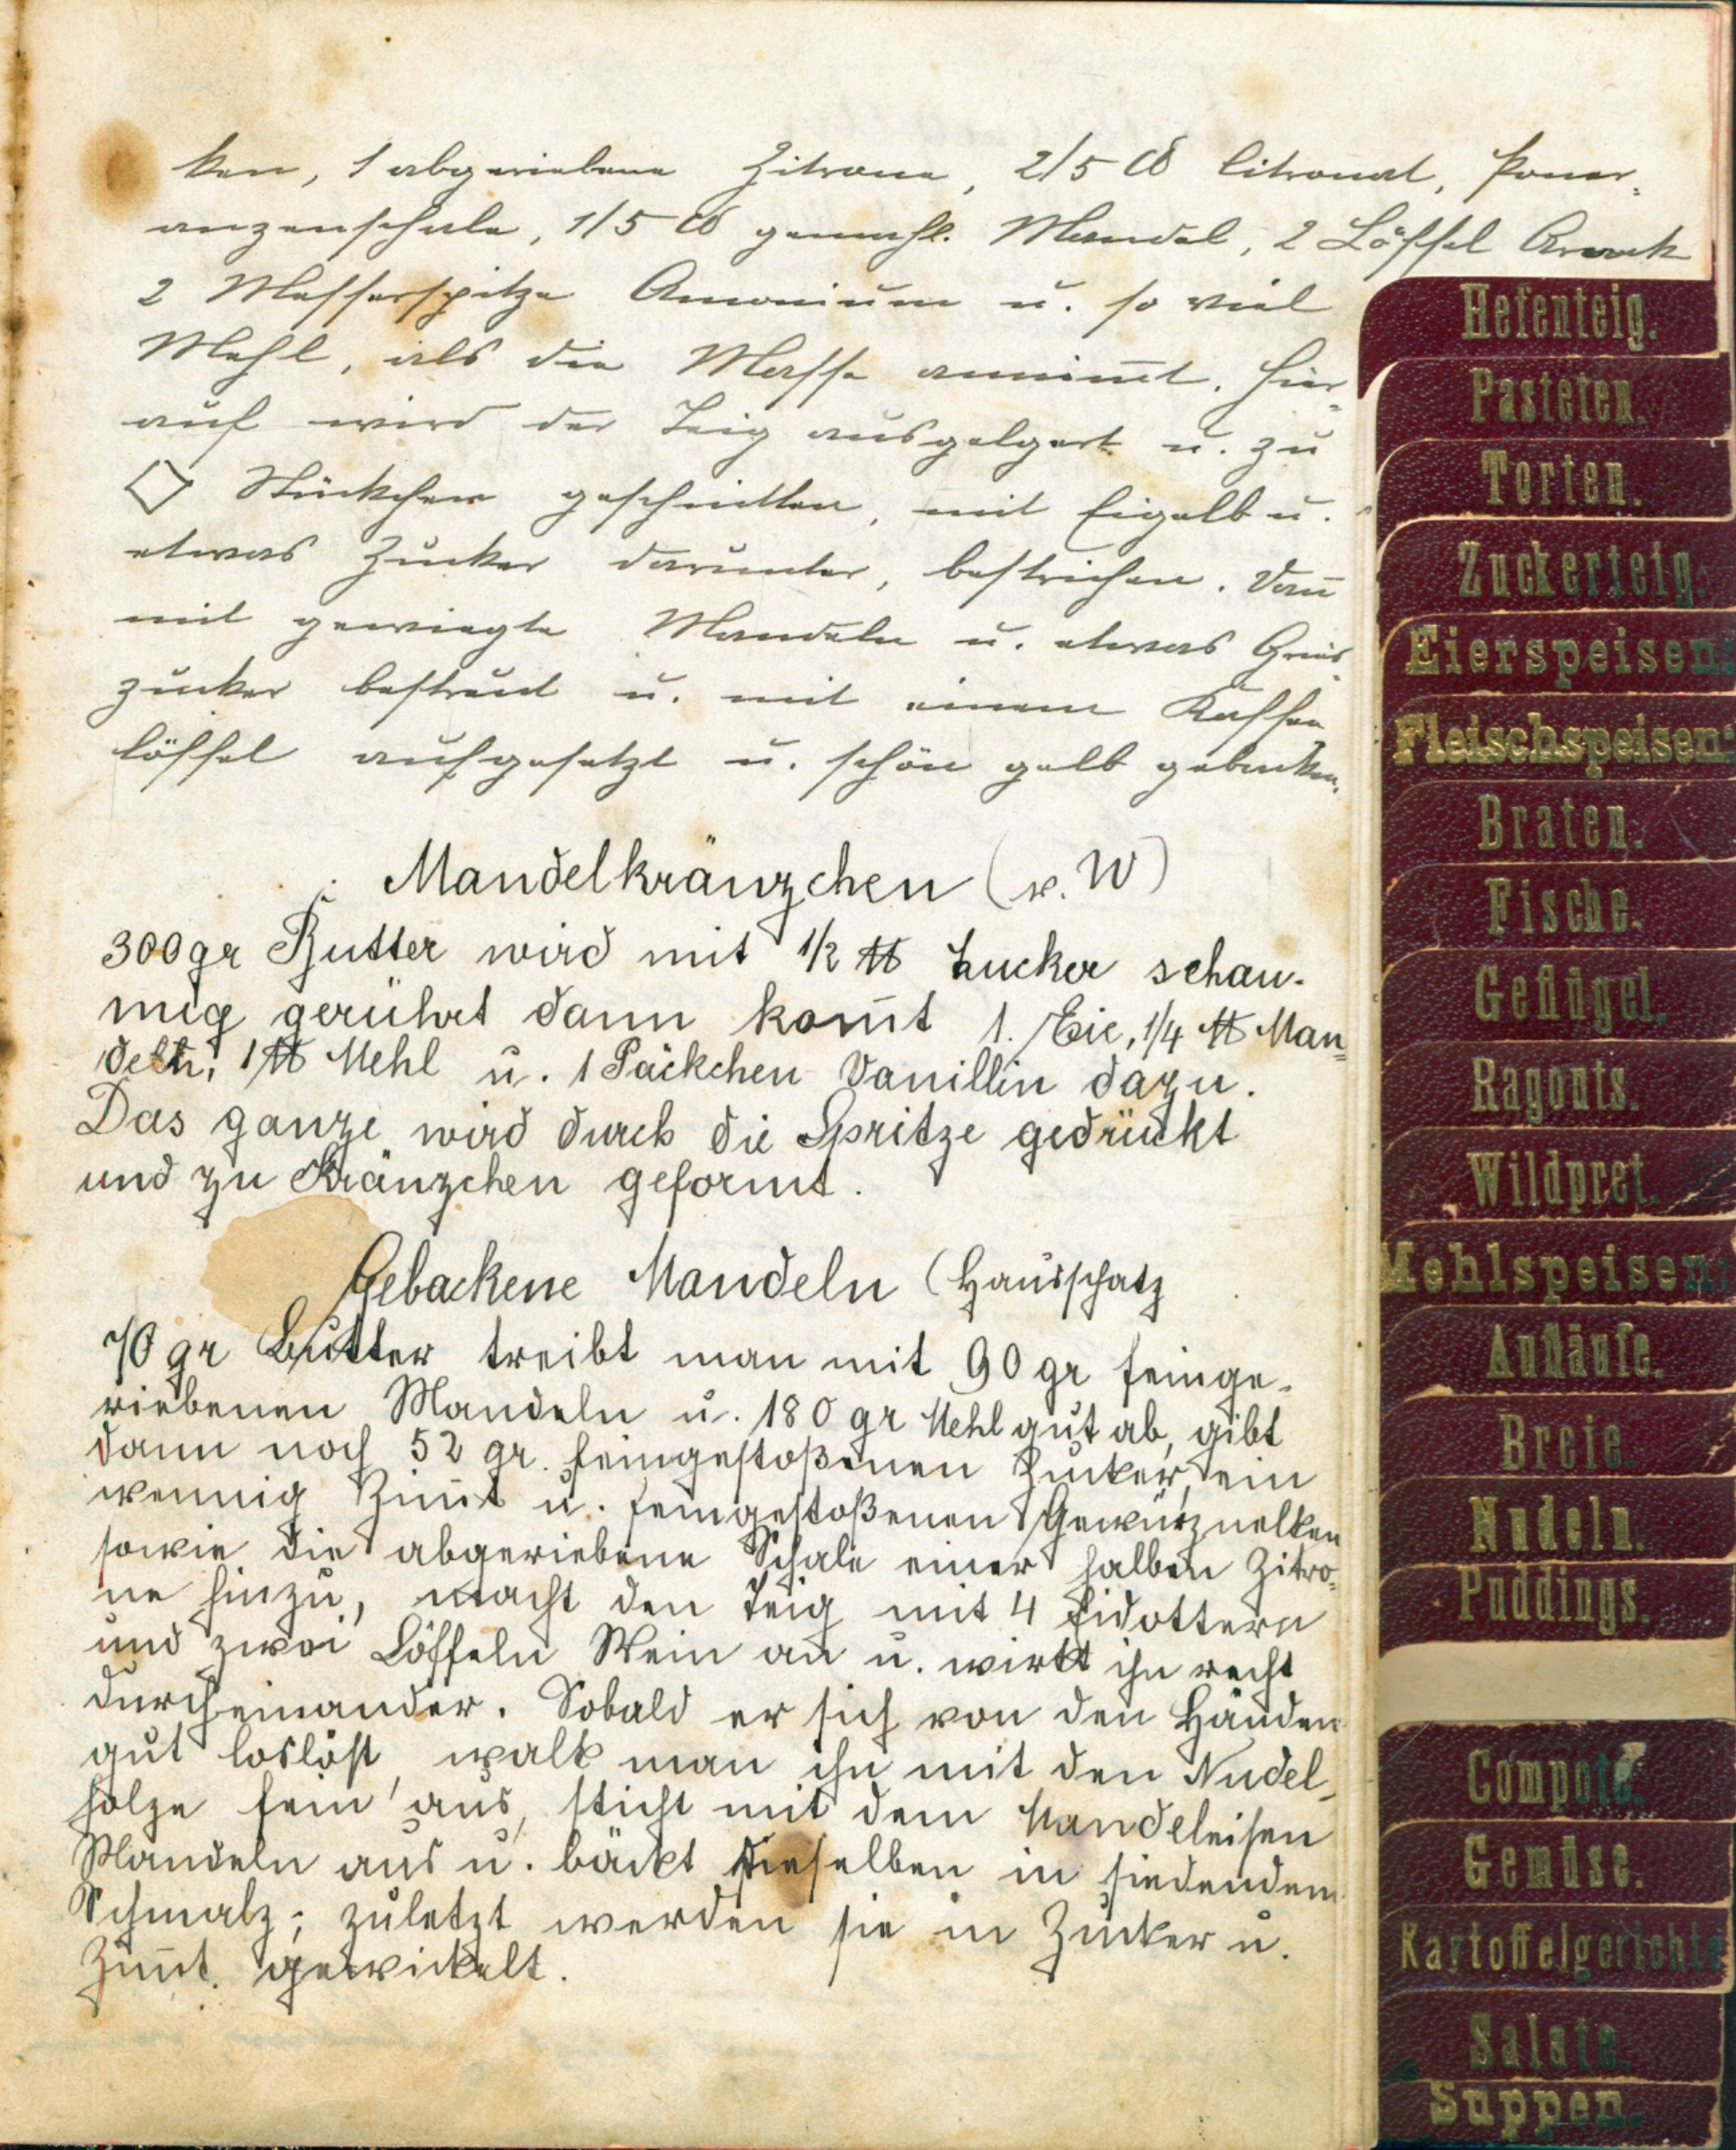 ken, 1 abgeriebene Zitrone, 2/5 ℔ Citronat, Pomer-
anzenschale, 1/5 ℔ gemahl. Mandel, 2 Löffel Arrak
2 Messerspitze Amonium u. so viel
Mehl, als die Masse annim̄t. Hier-
auf wird der Teig ausgelgert u. zu
◇ Stückchen geschnitten, mit Eigelb u.
etwas Zucker darunter, bestrichen. Dan̄
mit gewiegte Mandeln u. etwas Gries-
zucker bestreut u. mit einem Kaffee
löffel aufgesetzt u. schön gelb gebacken.
Mandelkränzchen (v. W)
300 gr Butter wird mit 1/2 ℔ Zucker schau-
mig gerührt dann kom̄t 1. Eie, 1/4 ℔ Man=
deln, 1 ℔ Mehl u. 1 Päckchen Vanillin dazu.
Das ganze wird durch die Spritze gedrückt
und zu Kränzchen geformt.
Gebackene Mandeln (Hausschatz
70 gr Butter treibt man mit 90 gr feinge-
riebenen Mandeln u. 180 gr Mehl gut ab, gibt
dann noch 52 gr. feingestoßenen Zucker, ein
wennig Zim̄t u. feingestoßenen Gewürznelken
sowie die abgeriebene Schale einer halben Zitro-
ne hinzu, macht den Teig mit 4 Eidottern
und zwei Löffeln Wein an u. wirkt ihn recht
durcheinander. Sobald er sich von den Händen
gut loslöst, walk man ihn mit den Nudel-
holze fein aus, sticht mit dem Mandeleisen
Mandeln aus u. bäckt dieselben in siedendem
Schmalz; zuletzt werden sie in Zucker u.
Zim̄t gewickelt.
Hefenteig.
Pasteten.
Torten.
Zuckerteig.
Eierspeisen.
Fleischspeisen.
Braten.
Fische.
Geflügel.
Ragouts.
Wildpret.
Mehlspeisen.
Aufläufe.
Breie.
Nudeln.
Puddings.
Compote.
Gemüse.
Kartoffelgerichte
Salate.
Suppen.